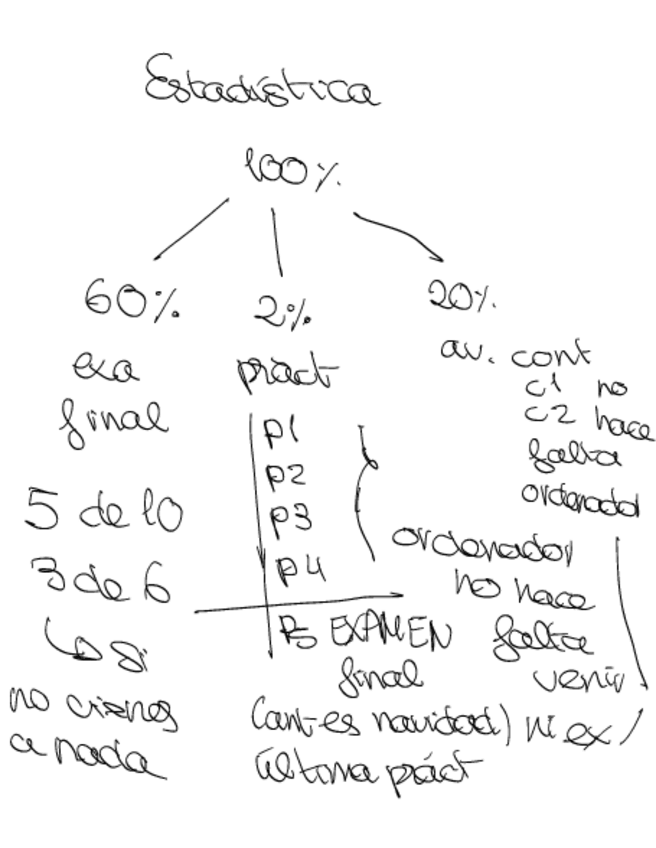 Estadística
100%
60%
exa
final
5 de 10
3 de 6
↳ si
no vienes
a nada
2%
pract
p1
p2
p3
p4
P5 EXAMEN
final
(antes navidad)
última práct
20%
av. cont
c1 no
c2 hace
falta
ordenador
ordenador
no hace
falta
venir
ni ex